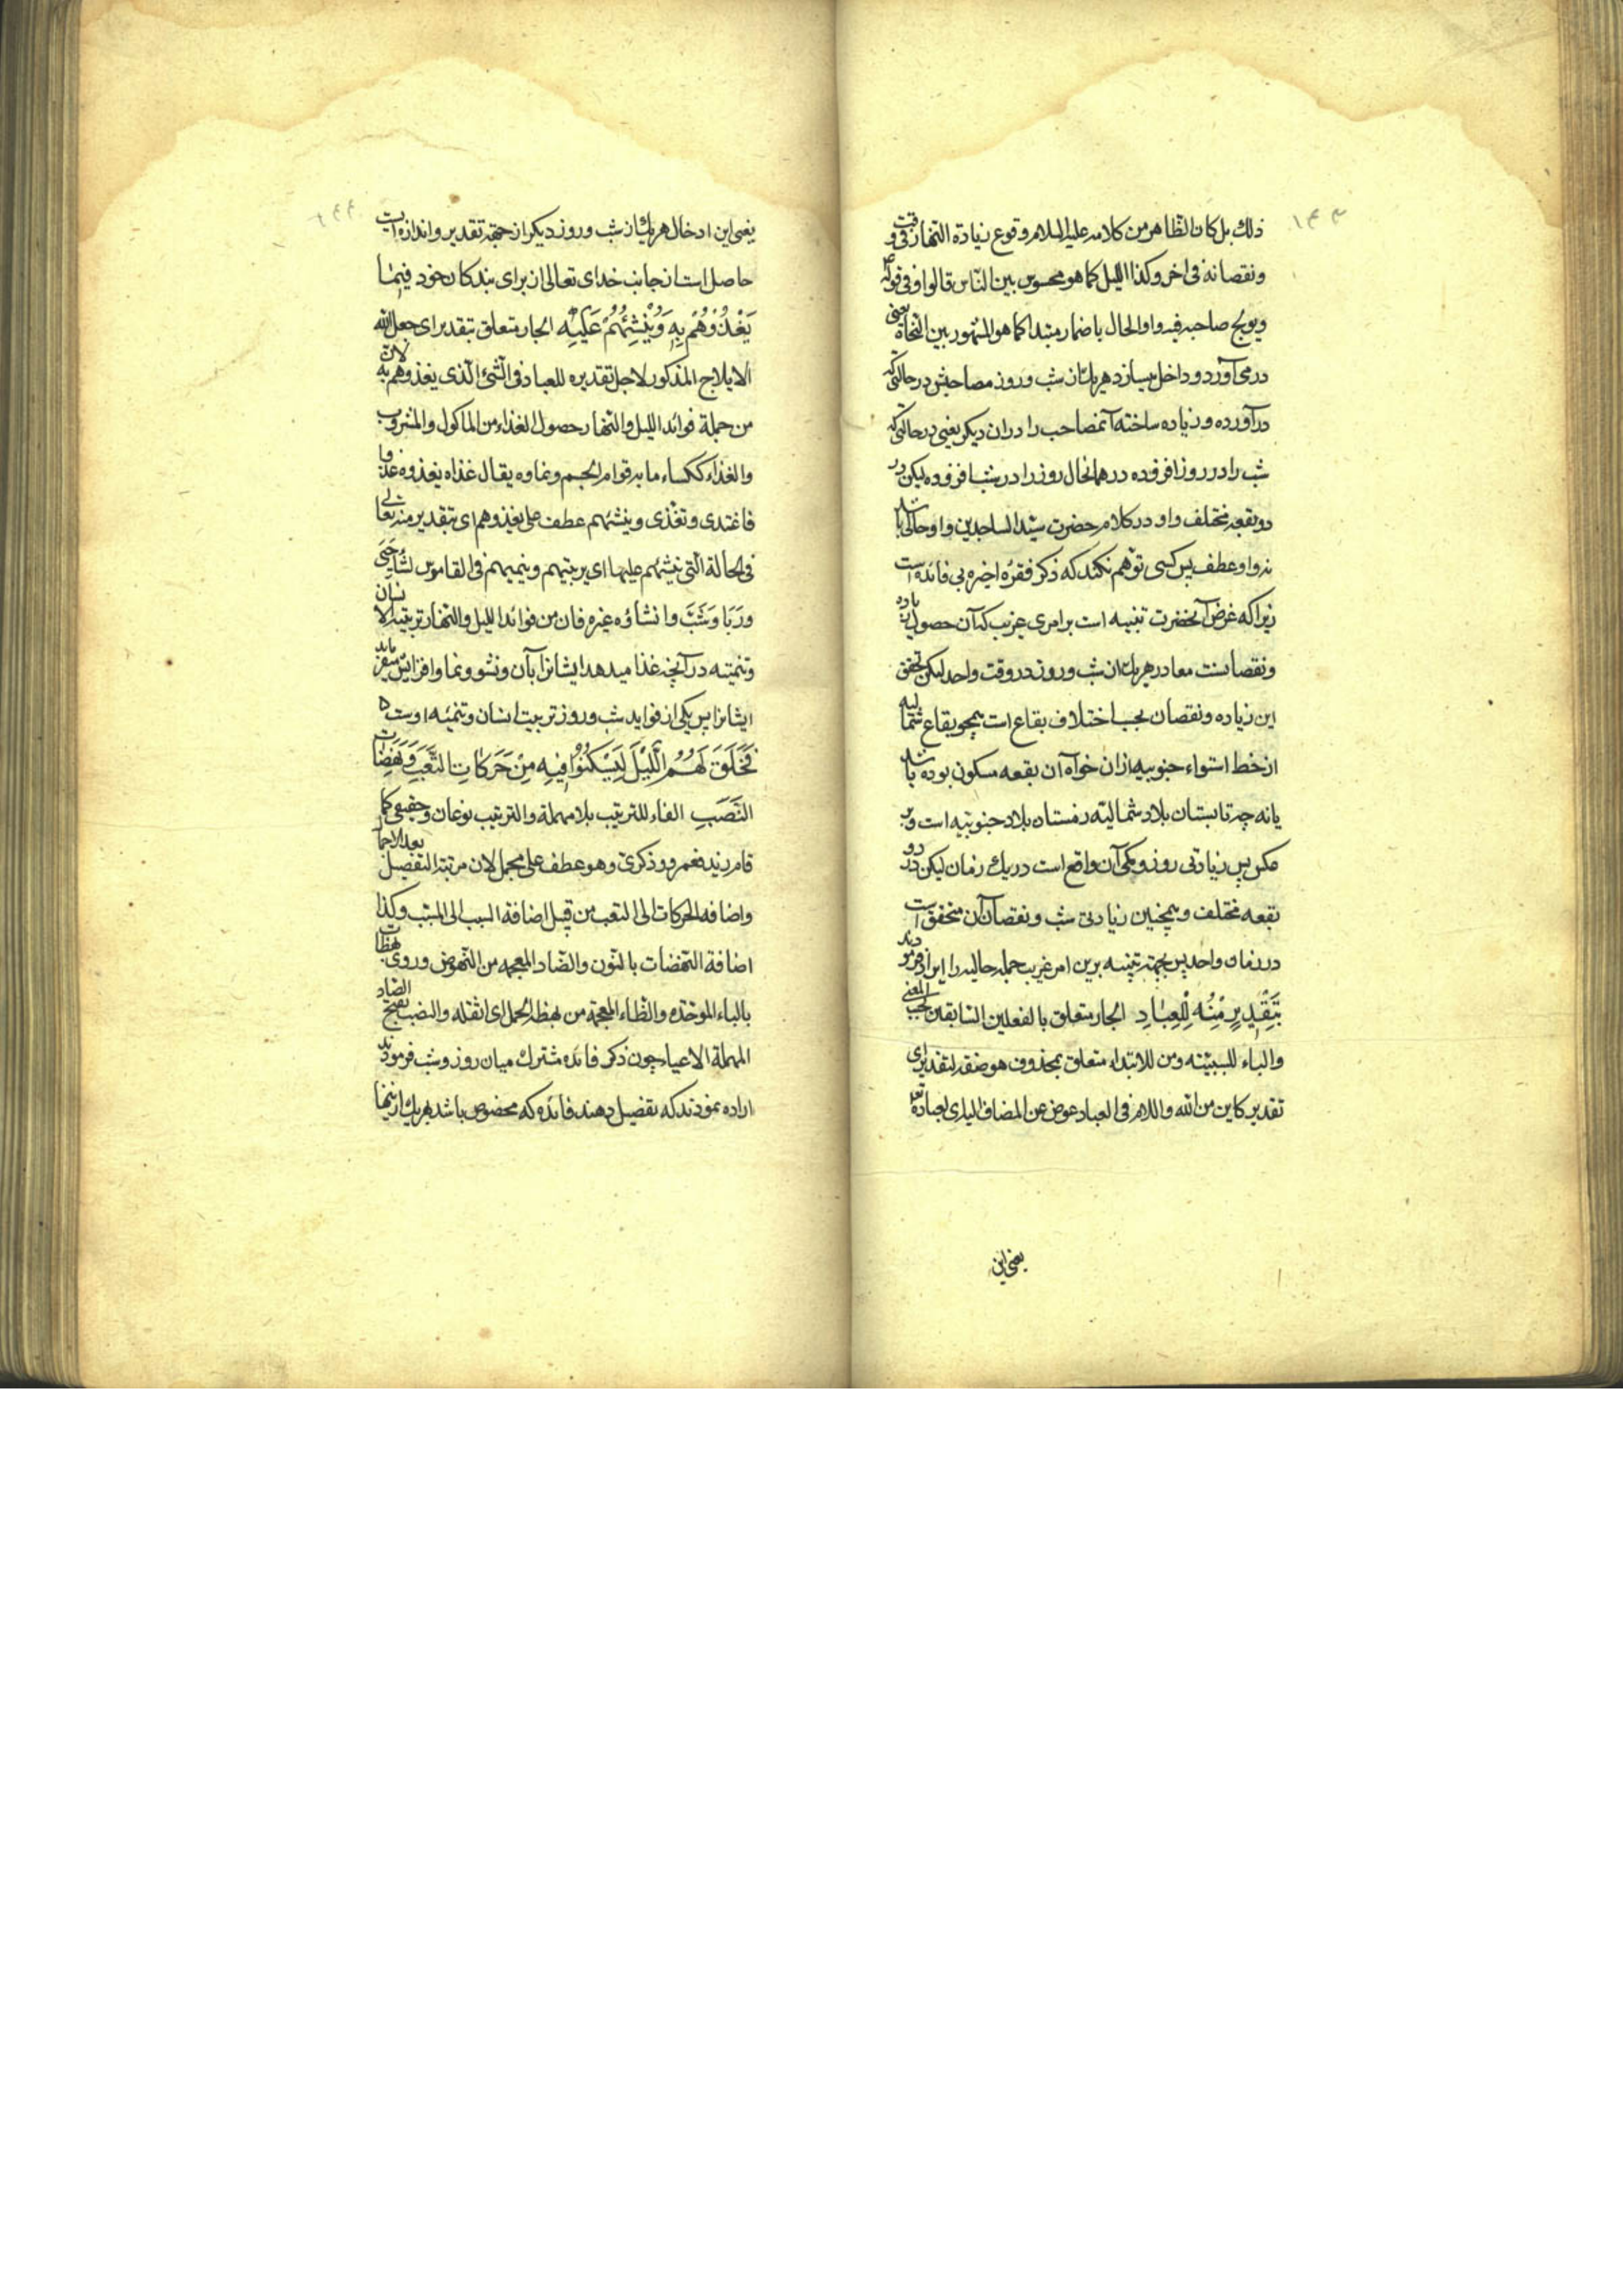 ١٤٣
ذلك بل كان الظاهر من كلامه عليه السلام وقوع زيادة النهار في وقت
ونقصانه في اخر وكذا الليل كما هو محسوس بين الناس قالوا وفي قوله
ويولج صاحبه فيه واو الحال باضمار مبتدا كما هو المشهور بين النحاة يعنى
در مى آورد و داخل ميسازد هر يك از شب و روز مصاحبش در حالتى كه
درآورده و زياده ساخته آنمصاحب را در ان ديكر يعنى در حالتى كه
شب را در روز افزوده در همانحال روز را در شب افزوده ليكن در
دو بقعه مختلف و او در كلام حضرت سيد الساجدين واو حالى باشد
نه واو عطف پس كسى توهم نكند كه ذكر فقره اخيره بى فائده است
زيرا كه غرض آنحضرت تنبيه است بر امرى غريب كه آن حصول زياده
ونقصانست معا در هر يك از شب و روز در وقت واحد ليكن تحقق
اين زياده و نقصان بحسب اختلاف بقاع است همچو بقاع شماليه
از خط استواء جنوبيه ازان خواه آن بقعه مسكون بوده باشد
يا نه چه تابستان بلاد شماليه زمستان بلاد جنوبيه است وبر
عكس پس زيادتى روز و كمى آن واقع است در يك زمان ليكن در دو
بقعه مختلف و همچنين زيادتى شب و نقصان آن متحقق است
در زمان واحد پس بجهة تنبيه برين امر غريب جمله حاليه را ايراد فرمودند
بِتَقْدِيرٍ مِنْهُ لِلْعِبَادِ الجار متعلق بالفعلين السابقين بحسب المعنى
والباء للسببية ومن للابتداء متعلق بمحذوف هو صفة لتقدير اى
تقدير كاين من الله واللام في العباد عوض عن المضاف اليه اى لعباده
يعنى اين
١٤٤
يعنى اين ادخال هر يك از شب و روز ديكر از جهة تقدير و اندازه ايست
حاصل است از جانب خداى تعالى از براى بندكان خود فِيمَا
يَغْذُوهُمْ بِهِ وَيُنْشِئُهُمْ عَلَيْهِ الجار متعلق بتقدير اى جعل الله
الايلاج المذكور لاجل تقديره للعباد في الشئ الذى يغذوهم به لان
من جملة فوائد الليل والنهار حصول الغذاء من الماكول والمشروب
والغذاء ككساء ما به قوام الجسم ونماوه يقال غذاه يغذوه غذوا
فاغتدى وتغذى وينشئهم عطف على يغذوهم اى بتقدير منه تعالى
في الحالة التى ينشئهم عليها اى يربيهم وينميهم في القاموس نشأ حيى
وربا وشب وانشاؤه غيره فان من فوائد الليل والنهار تربية الانسان
وتنميته در آنچه غذا ميدهد ايشانرا بآن ونشو ونما وافزايش ميفرمايد
ايشانرا پس يكى از فوايد شب و روز تربيت انسان وتنميه اوست
فَخَلَقَ لَهُمُ اللَّيْلَ لِيَسْكُنُوا فِيهِ مِنْ حَرَكَاتِ التَّعَبِ وَنَهَضَاتِ
النَّصَبِ الفاء للترتيب بلا مهملة والترتيب نوعان حقيقى كما
قام زيد فعمرو وذكرى وهو عطف على مجمل لان مرتبة التفصيل بعد الاجمال
واضافه الحركات الى التعب من قبيل اضافة السبب الى المسبب وكذا
اضافة النهضات بالنون والضاد المعجمه من النهوض وروى بهظات
بالباء الموحدة والظاء المعجمة من بهظه الحمل اى اثقله والنصب بفتح الصاد
المهملة الاعيا چون ذكر فائده مشترك ميان روز وشب فرمودند
اراده نمودند كه تفصيل دهند فائده كه مخصوص باشد بهر يك ازينها